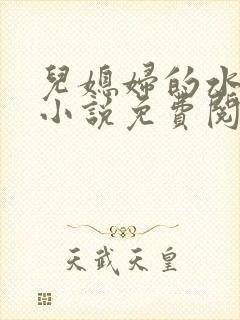 兒媳婦的水
小說免費閱
天武天皇